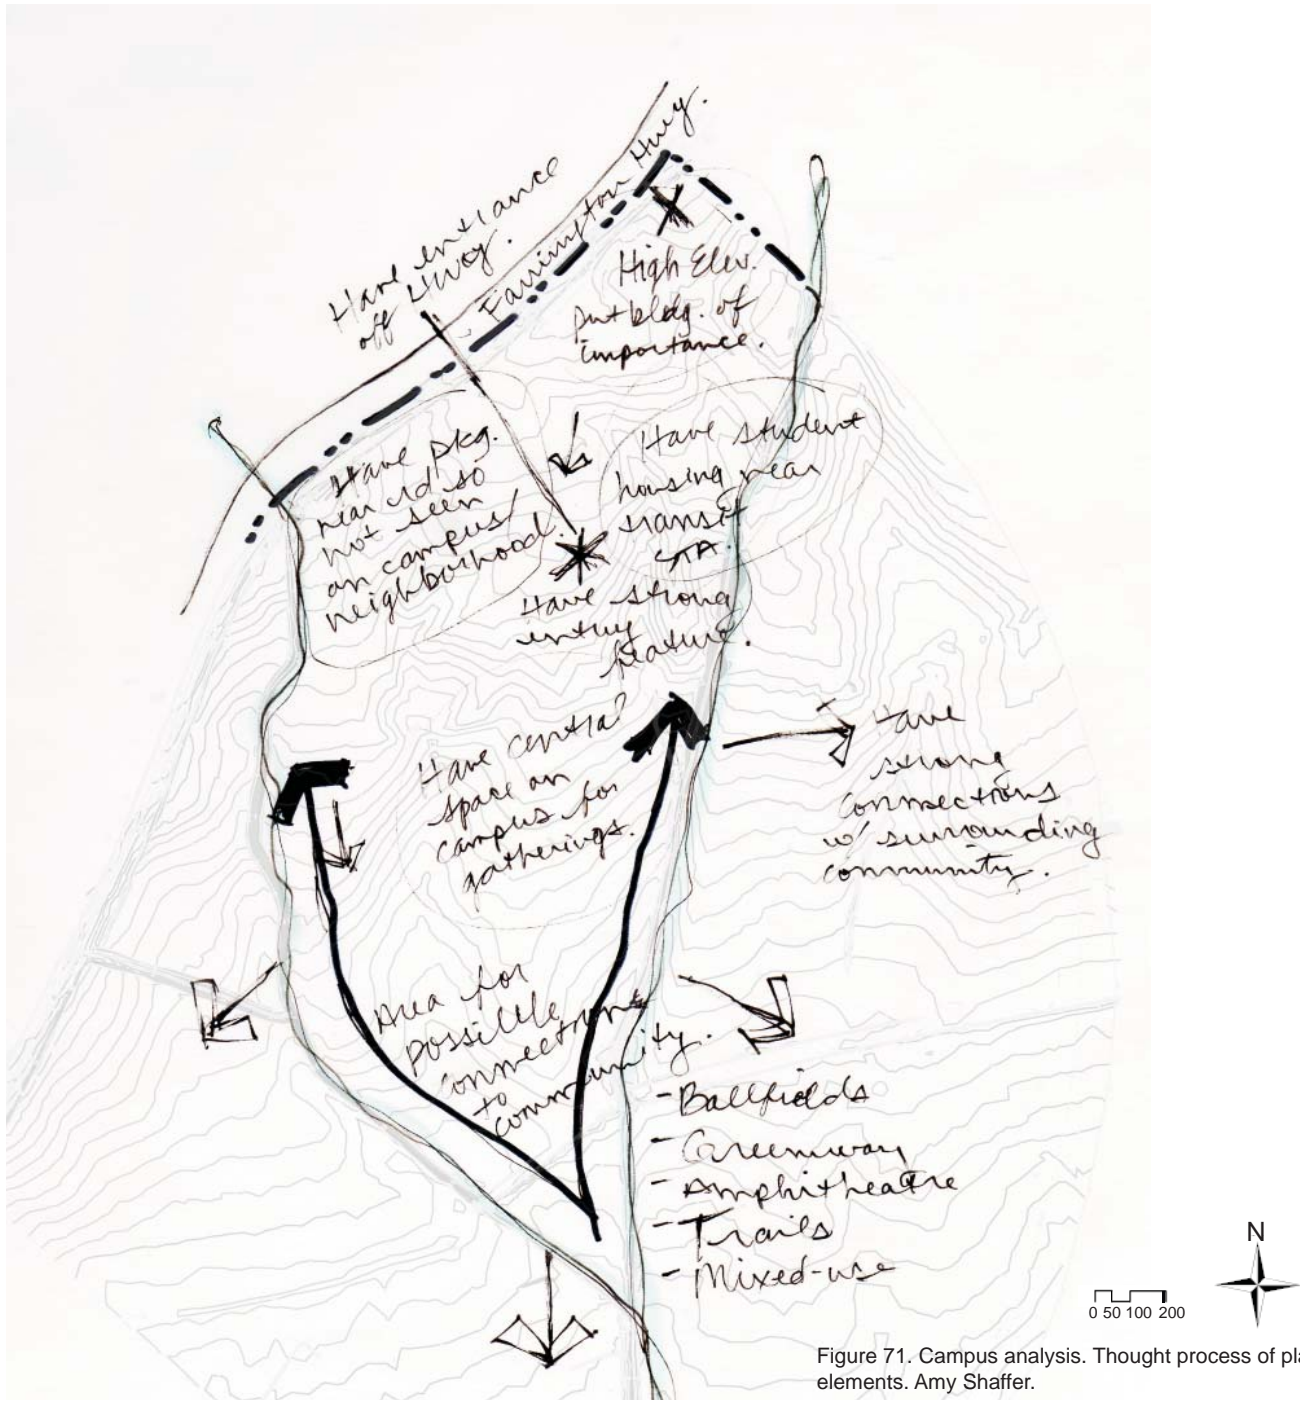 Have entrance
off Hwy.
Farrington Hwy.
High Elev.
Put bldg. of
importance.
Have pkg.
near rd so
not seen
on campus/
neighborhood.
Have student
housing near
transit
STA.
Have strong
entry
feature.
Have central
space on
campus for
gatherings.
Have
strong
connections
w/ surrounding
community.
Area for
possible
connections
to
community.
- Ballfields
- Greenway
- Amphitheatre
- Trails
- Mixed-use
N
0 50 100 200
Figure 71. Campus analysis. Thought process of pla
elements. Amy Shaffer.